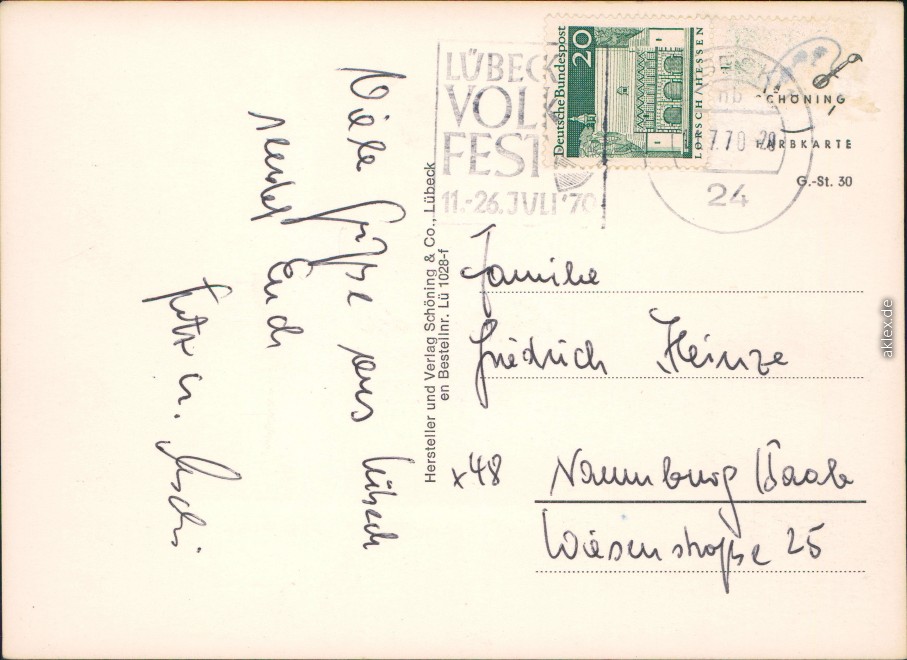 Viele Grüße aus Lübeck
sendet Euch
Fritz u. Uschi
Hersteller und Verlag Schöning & Co., Lübeck
en Bestellnr. Lü 1028-f
LÜBECK
VOLK
FEST
11.-26. JULI '70
Deutsche Bundespost
20
LORSCH/HESSEN
7.70
24
SCHÖNING
FARBKARTE
G.-St. 30
Familie
Friedrich Heinze
x48 Naumburg Saale
Wiesenstraße 25
aklex.de